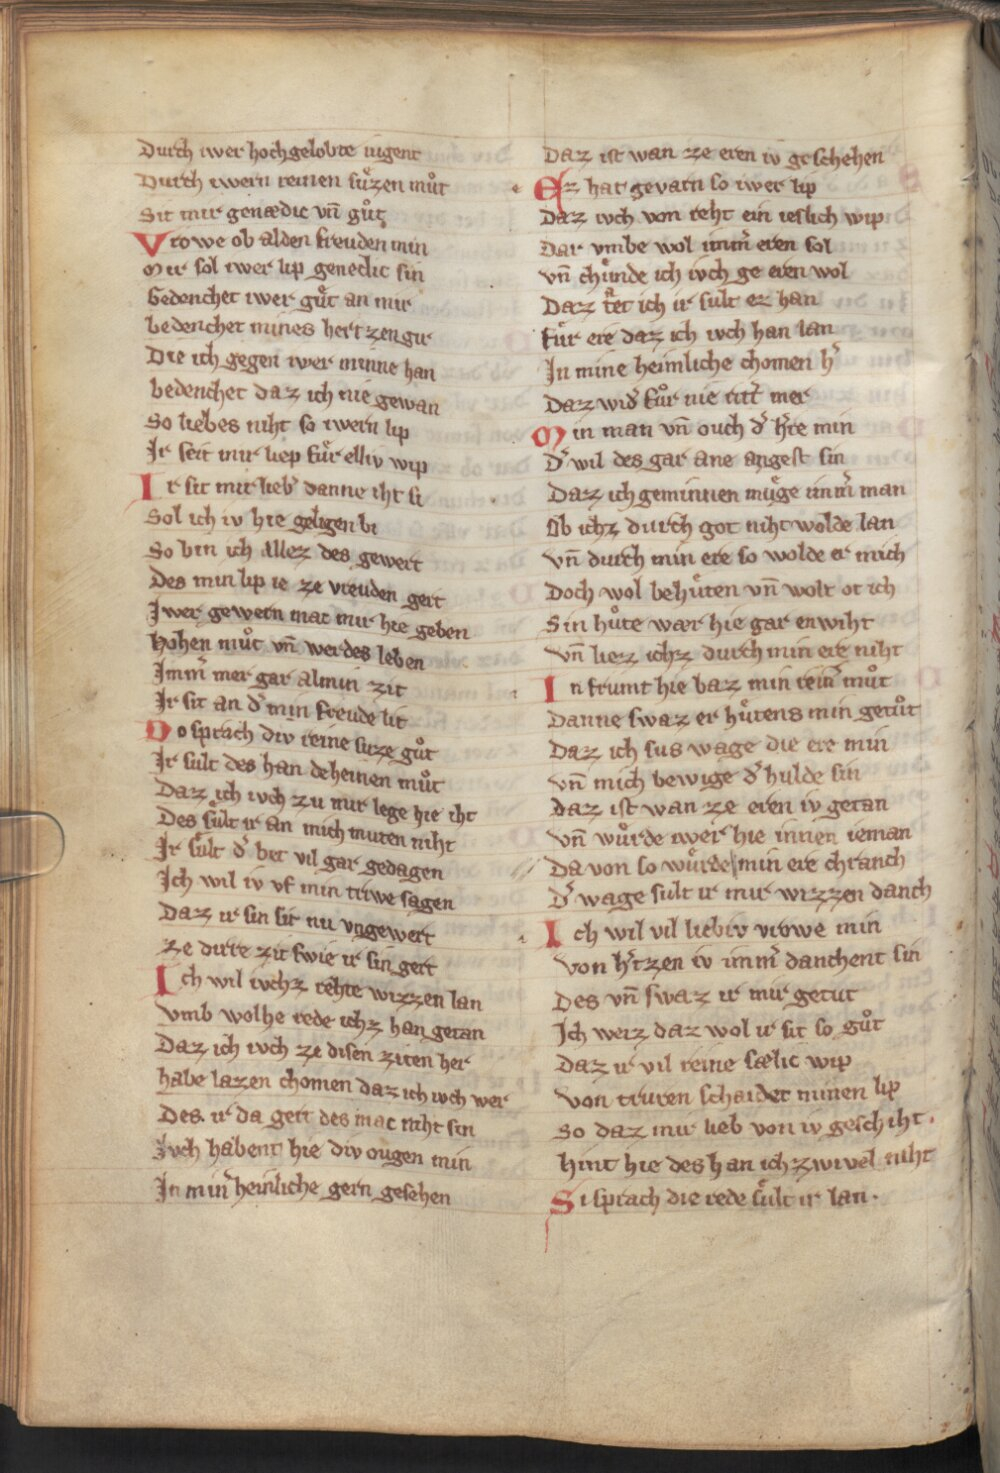 Durch iwer hochgelobte iugent
Durch iwern reinen sůzen můt
Sit mir genædic vn̄ gůt
Vrowe ob alden freuden min
Mir sol iwer lip genedic sin
Gedenchet iwer gůt an mir
bedenchet mines hertzen gir
Die ich gegen iwer minne han
bedenchet daz ich nie gewan
So liebes niht so iwern lip
Ir seit mir liep fůr elliv wip
Ir sit mir lieb͛ danne iht si
Sol ich iv hie geligen bi
So bin ich allez des gewert
Des min lip ie ze vreuden gert
Iwer gewern mac mir hie geben
Hohen můt vn̄ werdes leben
Imm͛ mer gar al min zit
Ir sit an d͛ min freude lit
Do sprach div reine suze gůt
Ir sult des han deheinen můt
Daz ich ivch zu mir lege hie iht
Des sůlt ir an mich muten niht
Ir sůlt d͛ bet vil gar gedagen
Ich wil iv vf min triwe sagen
Daz ir sin sit nu vngewert
ze dirre zit swie ir sin gert
Ich wil ivchz rehte wizzen lan
Vmb wolhe rede ichz han getan
Daz ich ivch ze disen ziten her
habe lazen chomen daz ich ivch wer
Des ir da gert des mac niht sin
Ivch habent hie div ougen min
In min͛ heinliche gern gesehen
Daz ist wan ze eren iv geschehen
Ez hat gevarn so iwer lip
Daz ivch von reht ein ieslich wip
Dar vmbe wol imm͛ eren sol
vn̄ chůnde ich ivch ge eren wol
Daz tæt ich ir sult ez han
fůr ere daz ich ivch han lan
In mine heimliche chomen h͛
Daz wid͛ fůr nie ritt͛ mer
Min man vn̄ ouch d͛ h͛re min
D͛ wil des gar ane angest sin
Daz ich geminnen můge imm͛ man
Ob ichz durch got niht wolde lan
vn̄ durch min ere so wolde er mich
Doch wol behůten vn̄ wolt ot ich
Sin hůte wær hie gar enwiht
vn̄ liez ichz durch min ere niht
In frumt hie baz min rein͛ můt
Danne swaz er hůtens min getůt
Daz ich sus wage die ere min
vn̄ mich bewige d͛ hulde sin
daz ist wan ze eren iv getan
vn̄ wůrde iwer hie innen ieman
Da von so wůrde min ere chranch
D͛ wage sult ir mir wizzen danch
Ich wil vil liebiv vrowe min
von h͛tzen iv imm͛ danchent sin
Des vn̄ swaz ir mir getut
Ich weiz daz wol ir sit so gůt
Daz ir vil reine sælic wip
von truren schaidet minen lip
So daz mir lieb von iv geschiht.
hint hie des han ich zwivel niht
Si sprach die rede sůlt ir lan.